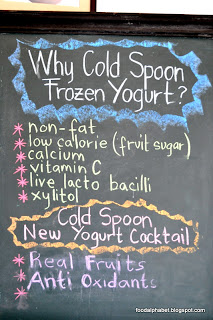 Why Cold Spoon
Frozen Yogurt?
* non-fat
* low calorie (fruit sugar)
* calcium
* vitamin C
* live lacto bacilli
* xylitol
Cold Spoon
New Yogurt Cocktail
* Real Fruits
* Anti Oxidants
*
foodalphabet.blogspot.com